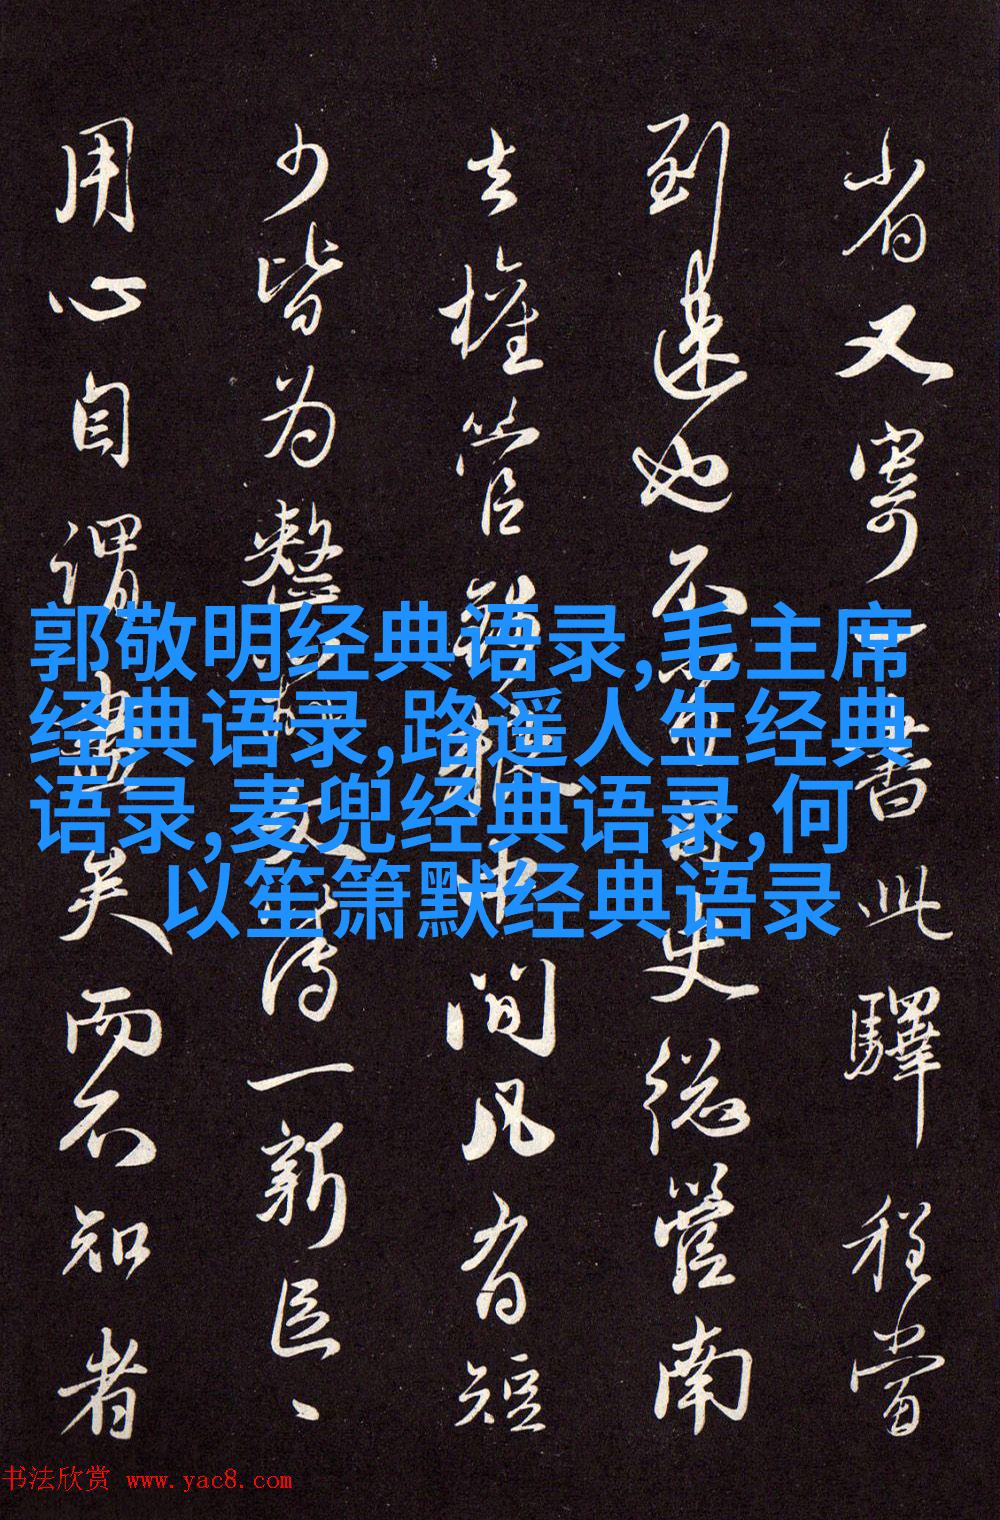 省又寄一書此驛程當
到速也不史從營南
去權管中間凡有短
少皆为整一新臣、
用心自謂盡矣而不知者
郭敬明经典语录,毛主席
经典语录,路遥人生经典
语录,麦兜经典语录,何
以笙箫默经典语录
书法欣赏 www.yac8.com